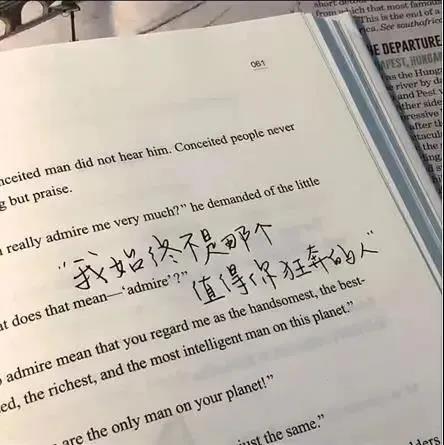 061
nceited man did not hear him. Conceited people never
g but praise.
really admire me very much?" he demanded of the little
"我始终不是那个
值得你狂奔的人"
at does that mean—'admire'?"
admire mean that you regard me as the handsomest, the best-
ed, the richest, and the most intelligent man on this planet."
are the only man on your planet!"
just the same."
short
from which that most famou
This is the end of a
See southafric
HE DEPARTURE
APEST, HUNGAR
as the Hung
river by da
and Pest v
ther side
pressive
after